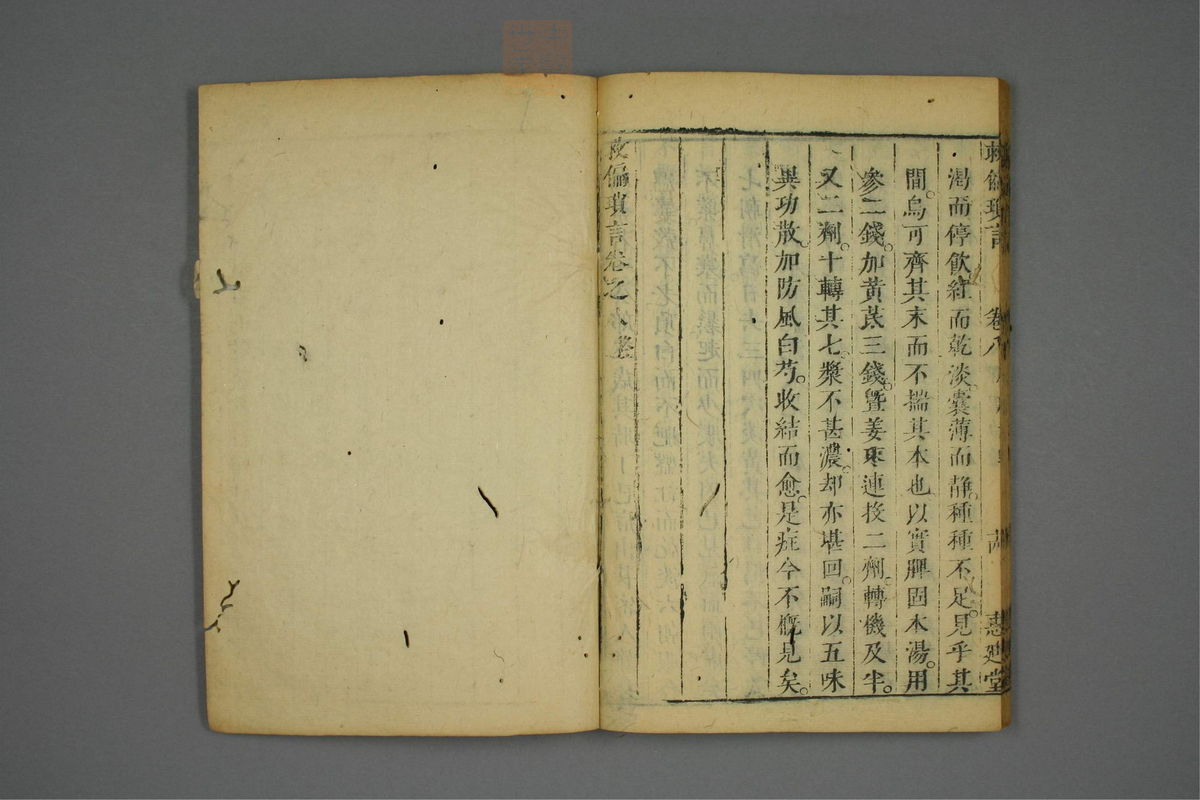 救偏瑣言 卷八 惠廸堂
渴而停飲紅而乾淡囊薄而靜種種不足見乎其
間烏可齊其末而不揣其本也以實脾固本湯用
參二錢加黃茋三錢暨姜棗連投二劑轉機及半
又二劑十轉其七漿不甚濃却亦堪回嗣以五味
異功散加防風白芍收結而愈是症今不槪見矣
救偏瑣言卷之八終